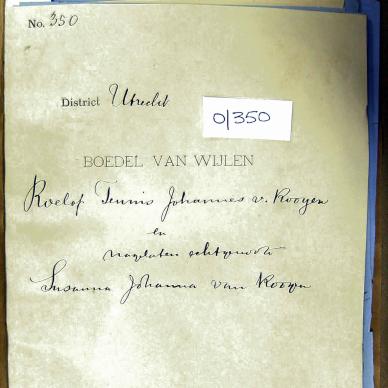 No. 350
District Utrecht
0/350
BOEDEL VAN WIJLEN
Roelof Teunis Johannes v. Rooyen
en
nagelaten echtgenoote
Susanna Johanna van Rooyen